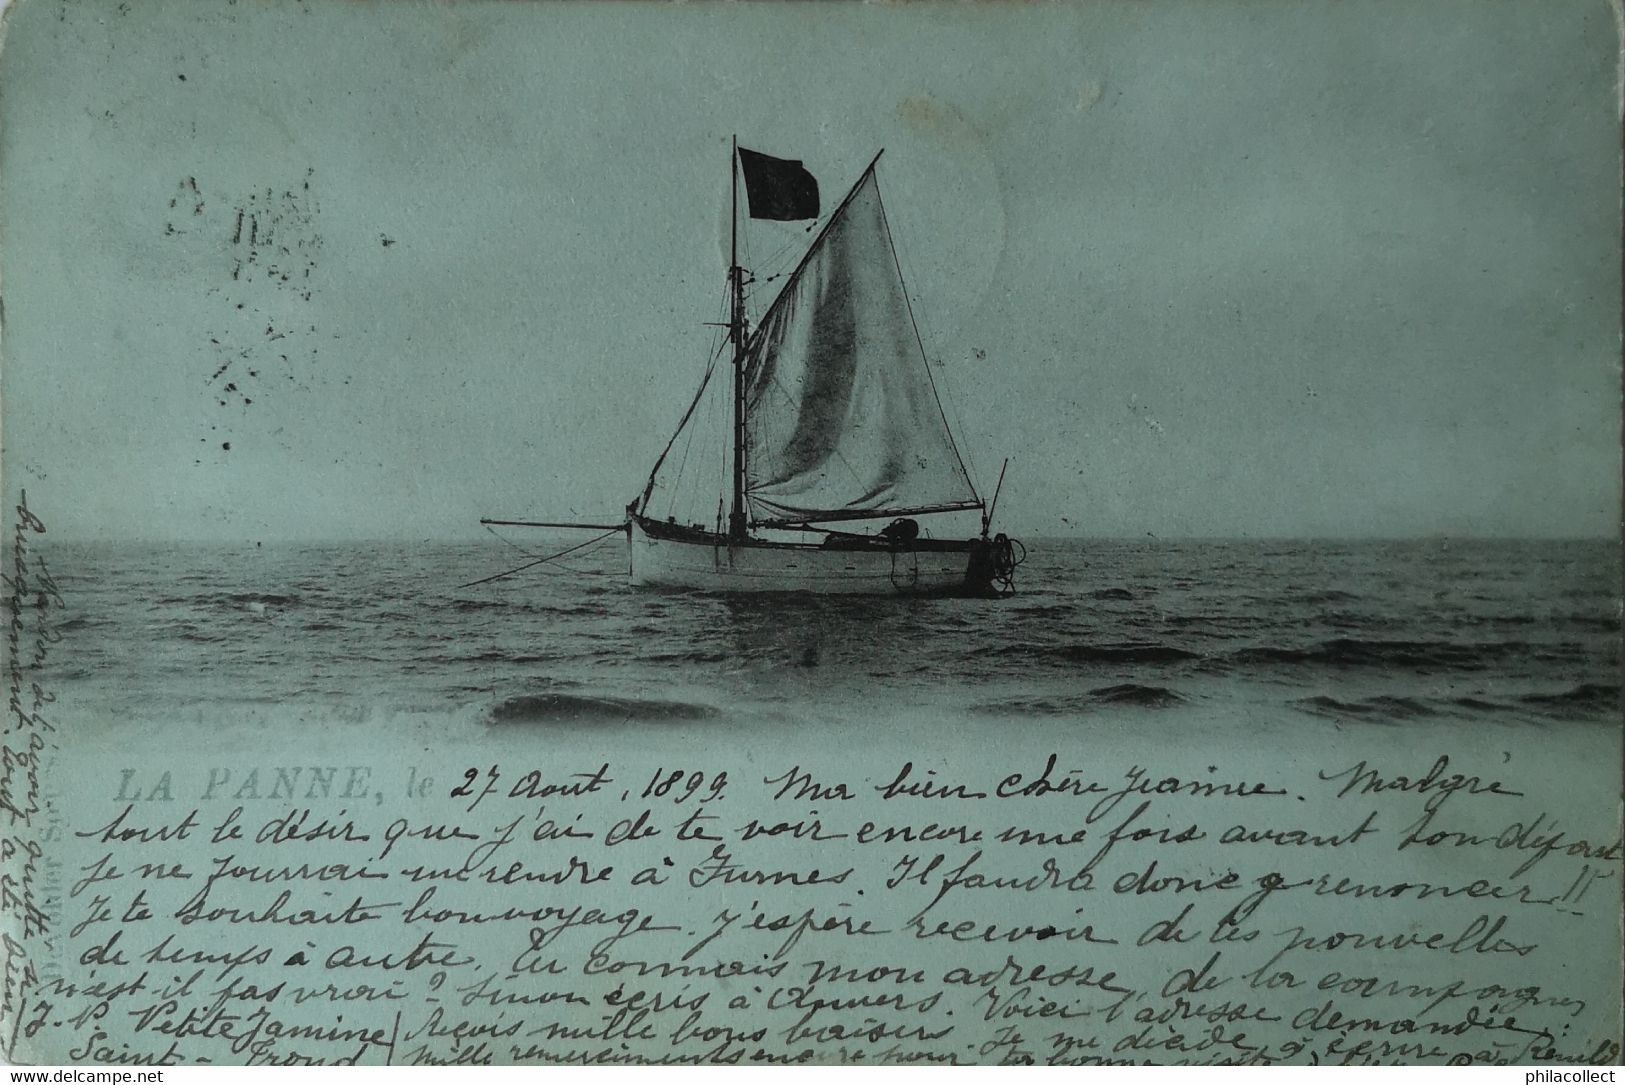 LA PANNE, le 27 Août, 1899. Ma bien chère Jeanne. Malgré
tout le désir que j'ai de te voir encore une fois avant ton départ
je ne pourrai me rendre à Furnes. Il faudra donc y renoncer!!
Je te souhaite bon voyage. J'espère recevoir de tes nouvelles
de temps à autre. Tu connais mon adresse, de la campagne,
n'est-il pas vrai? Sinon écris à Anvers. Voici l'adresse demandée:
J. P. Petite Jamine
Saint-Trond
Reçois mille bons baisers. Je me décide à écrire à
mille remerciments encore pour ta bonne visite
Pardon de t'avoir quittée si
brusquement. tout a été
philacollect
www.delcampe.net